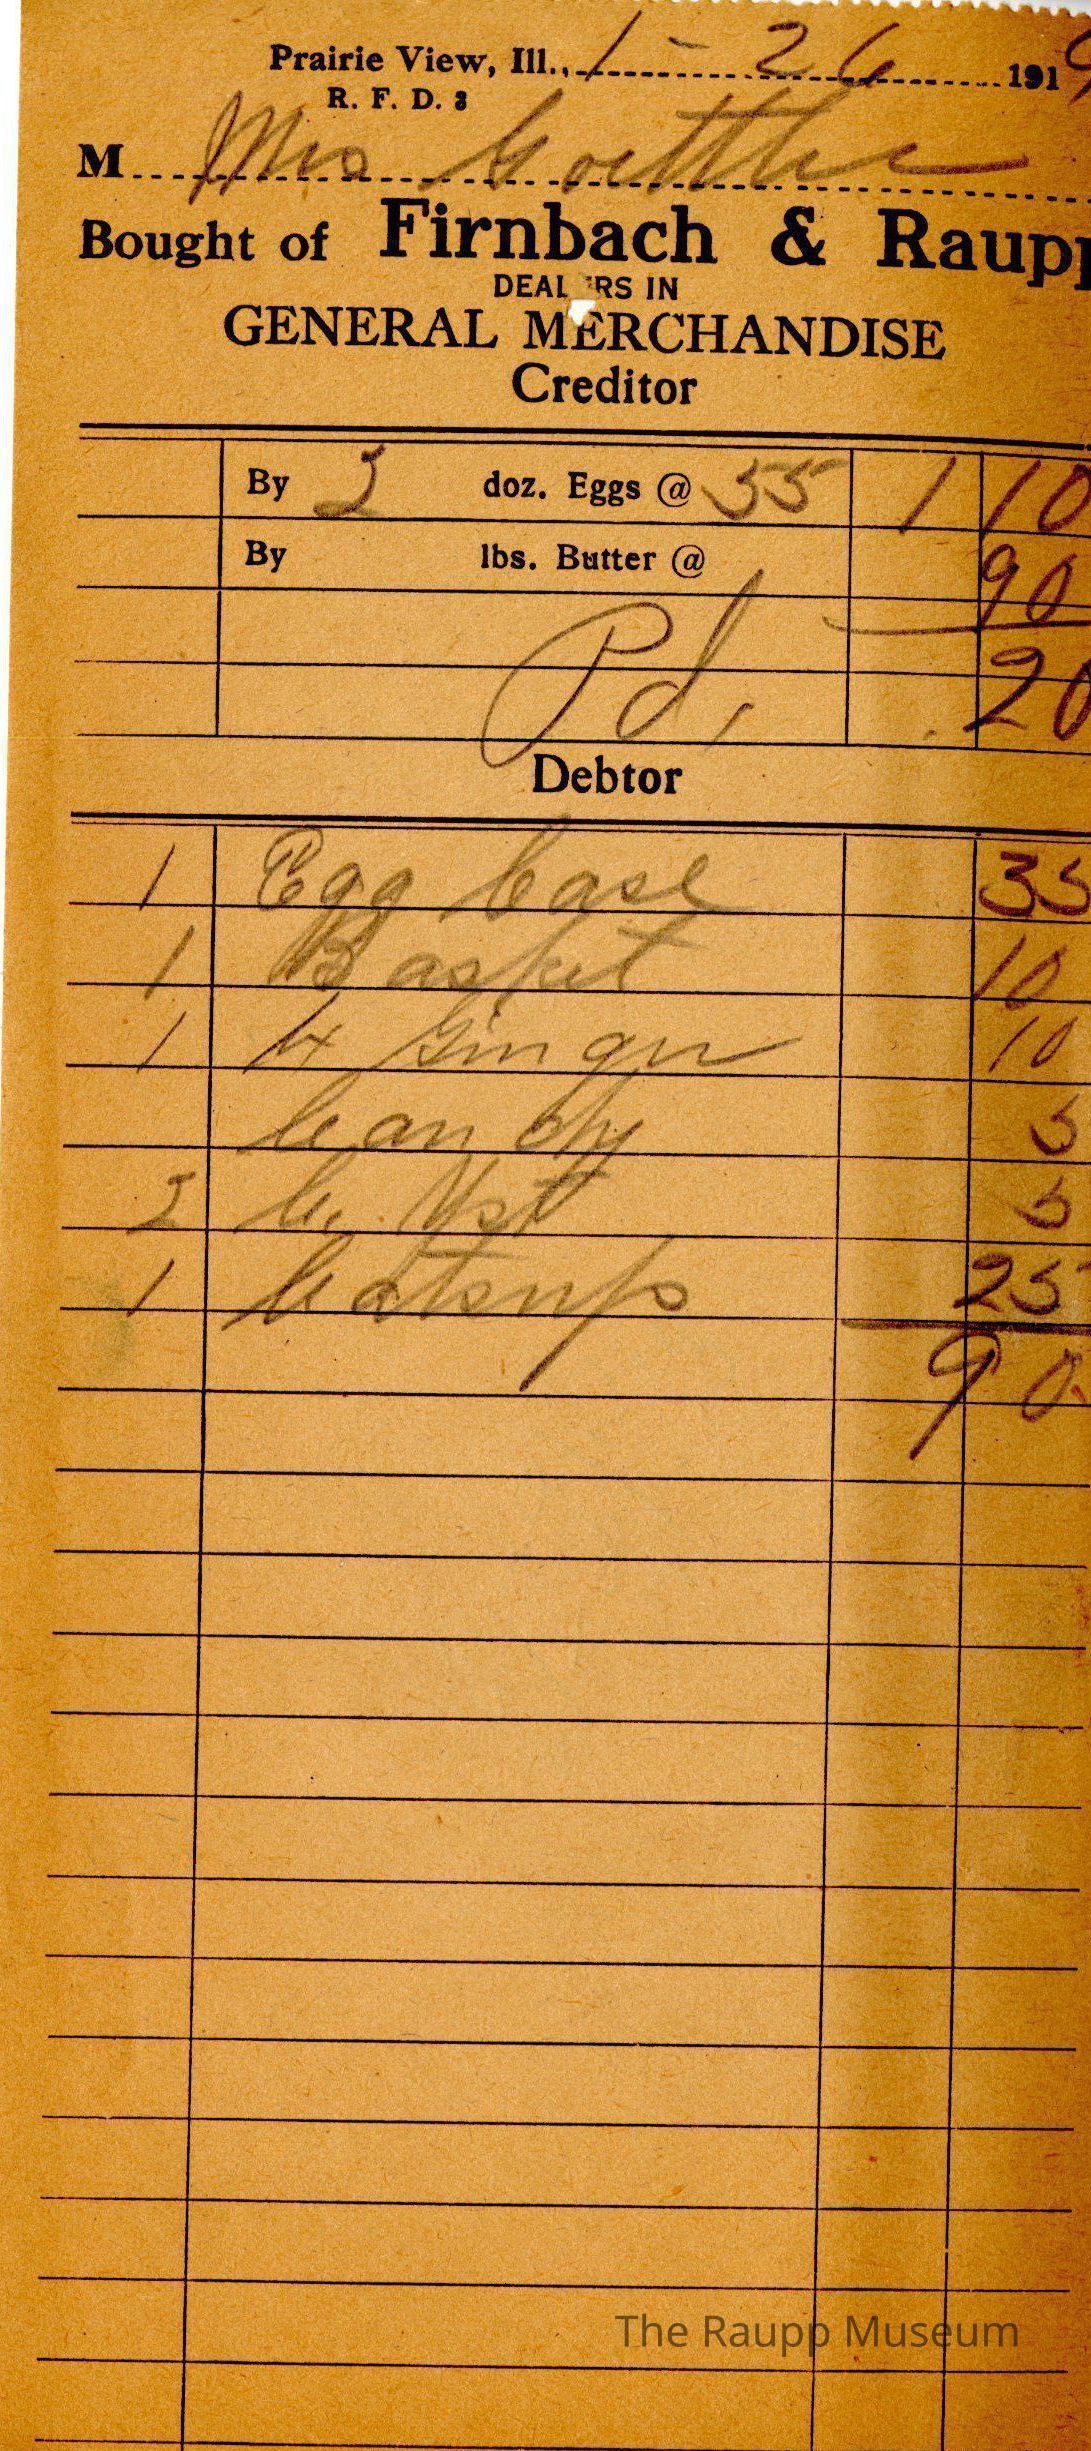 Prairie View, Ill., 1 - 26 1919
R. F. D. 3
M Mrs Goettler
Bought of Firnbach & Raupp
DEALERS IN
GENERAL MERCHANDISE
Creditor
By 2 doz. Eggs @ 55 1 10
By lbs. Butter @ 90
Pd. 20
Debtor
1 Egg Case 35
1 Basket 10
1 Ginger 10
Candy 5
2 C. Yst 5
1 Catsup 25
90
The Raupp Museum